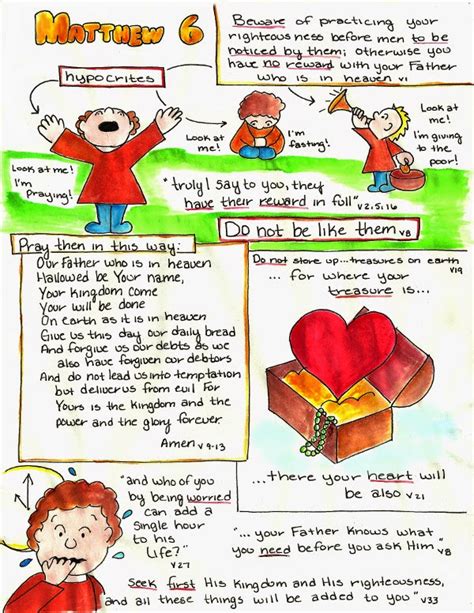 Matthew 6
Beware of practicing your
righteousness before men to be
noticed by them; otherwise you
have no reward with your Father
who is in heaven v1
hypocrites
Look at me!
I'm
Praying!
Look at
me!
I'm
fasting!
Look at
me!
I'm giving
to the
poor!
"truly I say to you, they
have their reward in full" v2,5,16
Do not be like them v8
Pray then in this way:
Our Father who is in heaven
Hallowed be Your name,
Your kingdom come
Your will be done
On earth as it is in heaven
Give us this day our daily bread
And forgive us our debts as we
also have forgiven our debtors
And do not lead us into temptation
but deliver us from evil For
Yours is the kingdom and the
power and the glory forever.
Amen v 9-13
Do not store up...treasures on earth
v19
...for where your
treasure is...
...there your heart will
be also v21
"and who of you
by being worried
can add a
single hour
to his
life?"
v27
"...your Father knows what
you need before you ask Him" v8
Seek first His kingdom and His righteousness,
and all these things will be added to you" v33